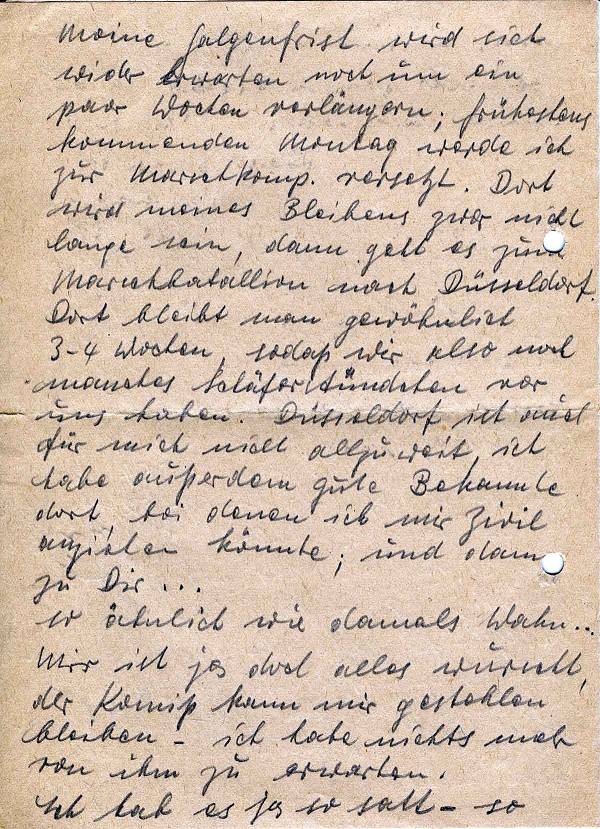 Meine Galgenfrist wird sich
wider Erwarten noch um ein
paar Wochen verlängern; frühestens
kommenden Montag werde ich
zur Marschkomp. versetzt. Dort
wird meines Bleibens zwar nicht
lange sein, dann geht es zum
Marschbatallion nach Düsseldorf.
Dort bleibt man gewöhnlich
3-4 Wochen, sodaß wir also noch
manches Schäferstündchen vor
uns haben. Düsseldorf ist auch
für mich nicht allzuweit, ich
habe außerdem gute Bekannte
dort, bei denen ich mir Zivil
anziehen könnte; und dann
zu Dir...
so ähnlich wie damals Wahn...
Mir ist ja doch alles wurscht,
der Komiß kann mir gestohlen
bleiben - ich habe nichts mehr
von ihm zu erwarten.
Ich hab es ja so satt - so